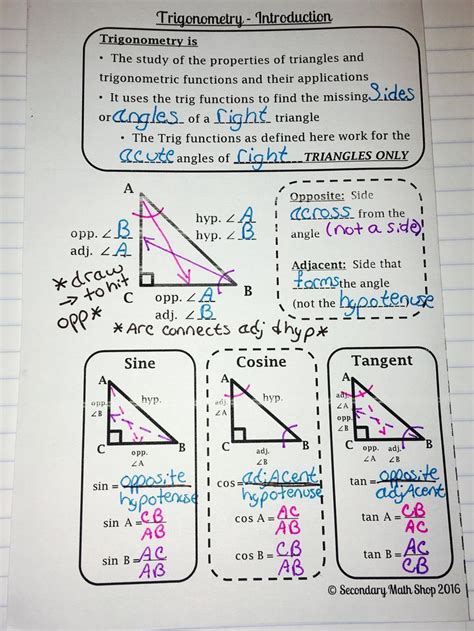 Trigonometry - Introduction
Trigonometry is
• The study of the properties of triangles and
trigonometric functions and their applications
• It uses the trig functions to find the missing Sides
or angles of a right triangle
• The Trig functions as defined here work for the
acute angles of right TRIANGLES ONLY
A
opp. ∠ B
adj. ∠ A
hyp. ∠ A
hyp. ∠ B
C
opp. ∠ A
adj. ∠ B
B
*draw
→ to hit
opp*
*Arc connects adj & hyp*
Opposite: Side
across from the
angle (not a side)
Adjacent: Side that
forms the angle
(not the hypotenuse
Sine
A
opp.
∠B
hyp.
C
opp.
∠A
B
sin = opposite
hypotenuse
sin A = CB
AB
sin B = AC
AB
Cosine
A
adj.
∠A
hyp.
C
adj.
∠B
B
cos = adjAcent
hypotenuse
cos A = AC
AB
cos B = CB
AB
Tangent
A
adj.
∠A
opp.
∠B
C
opp.
∠A
adj.
∠B
B
tan = opposite
adjAcent
tan A = CB
AC
tan B = AC
CB
© Secondary Math Shop 2016